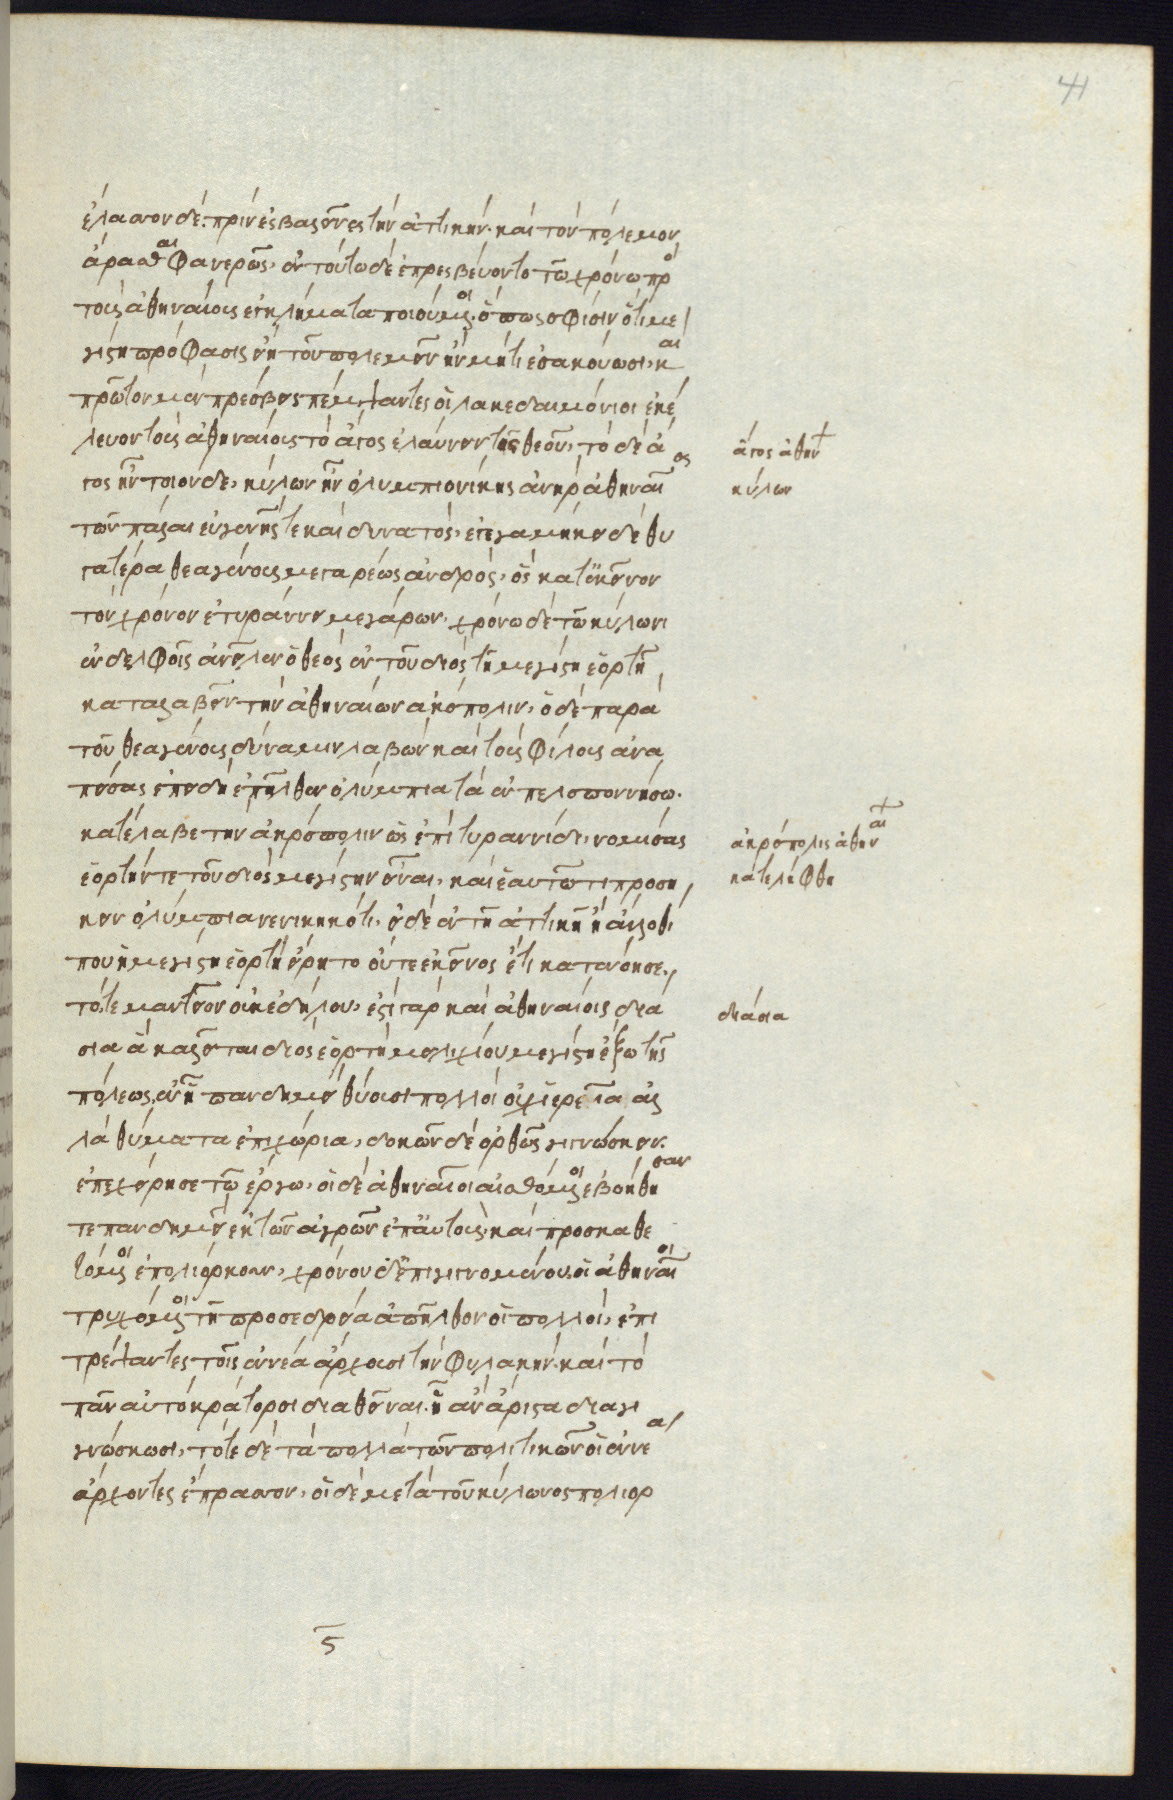 41
ἔλασσον δὲ πρὶν ἐσβαλεῖν ἐς τὴν ἀττικήν. καὶ τὸν πόλεμον
ἄρασθαι φανερῶς. ἐν τούτω δὲ ἐπρεσβεύοντο τῶ χρόνω πρὸς
τοὺς ἀθηναίους ἐγκλήματα ποιούμενοι. ὅπως σφίσιν ὅτι με
γίστη πρόφασις εἴη τοῦ πολεμεῖν ἢν μή τι ἐσακούωσι. καὶ
πρῶτον μὲν πρέσβεις πέμψαντες οἱ λακεδαιμόνιοι ἐκέ
λευον τοὺς ἀθηναίους τὸ ἄγος ἐλαύνειν τῆς θεοῦ. τὸ δὲ ἄ
γος ἦν τοιόνδε. κύλων ἦν ὀλυμπιονίκης ἀνὴρ ἀθηναῖος
τῶν πάλαι εὐγενής τε καὶ δυνατός. ἐγεγαμήκει δὲ θυ
γατέρα θεαγένους μεγαρέως ἀνδρός. ὃς κατ' ἐκεῖνον
τὸν χρόνον ἐτυράννει μεγάρων. χρόνω δὲ τῶ κύλωνι
ἐν δελφοῖς ἀνεῖλεν ὁ θεὸς ἐν τοῦ διὸς τῆ μεγίστη ἑορτῆ
καταλαβεῖν τὴν ἀθηναίων ἀκρόπολιν. ὁ δὲ παρὰ
τοῦ θεαγένους δύναμιν λαβὼν καὶ τοὺς φίλους ἀνα
πείσας ἐπειδὴ ἐπῆλθεν ὀλύμπια τὰ ἐν πελοποννήσω.
κατέλαβε τὴν ἀκρόπολιν ὡς ἐπὶ τυραννίδι. νομίσας
ἑορτήν τε τοῦ διὸς μεγίστην εἶναι. καὶ ἑαυτῶ τι προσή
κειν ὀλύμπια νενικηκότι. εἰ δὲ ἐν τῆ ἀττικῆ ἢ ἄλλοθί
που ἡ μεγίστη ἑορτὴ εἴρητο οὔτε ἐκεῖνος ἔτι κατενόησε.
τό τε μαντεῖον οὐκ ἐδήλου. ἔστι γὰρ καὶ ἀθηναίοις διά
σια ἃ καλεῖται διος ἑορτὴ μειλιχίου μεγίστη ἔξω τῆς
πόλεως. ἐν ἧ πανδημεὶ θύουσι πολλοὶ οὐχ ἱερεῖα ἀλ
λὰ θύματα ἐπιχώρια. δοκῶν δὲ ὀρθῶς γιγνώσκειν.
ἐπεχείρησε τῶ ἔργω. οἱ δὲ ἀθηναῖοι αἰσθόμενοι ἐβοήθησάν
τε πανδημεὶ ἐκ τῶν ἀγρῶν ἐπ' αὐτοὺς. καὶ προσκαθε
ζόμενοι ἐπολιόρκουν. χρόνου δὲ ἐπιγιγνομένου. οἱ ἀθηναῖοι
τρυχόμενοι τῆ προσεδρεία ἀπῆλθον οἱ πολλοί. ἐπι
τρέψαντες τοῖς ἐννέα ἄρχουσι τὴν φυλακήν. καὶ τὸ
πᾶν αὐτοκράτορσι διαθεῖναι. ἧ ἂν ἄριστα διαγι
γνώσκωσι. τότε δὲ τὰ πολλὰ τῶν πολιτικῶν οἱ ἐννέα
ἄρχοντες ἔπρασσον. οἱ δὲ μετὰ τοῦ κύλωνος πολιορ
ἄγος ἀθην
κύλων
ἀκρόπολις ἀθηναι
κατελήφθη
διάσια
ς